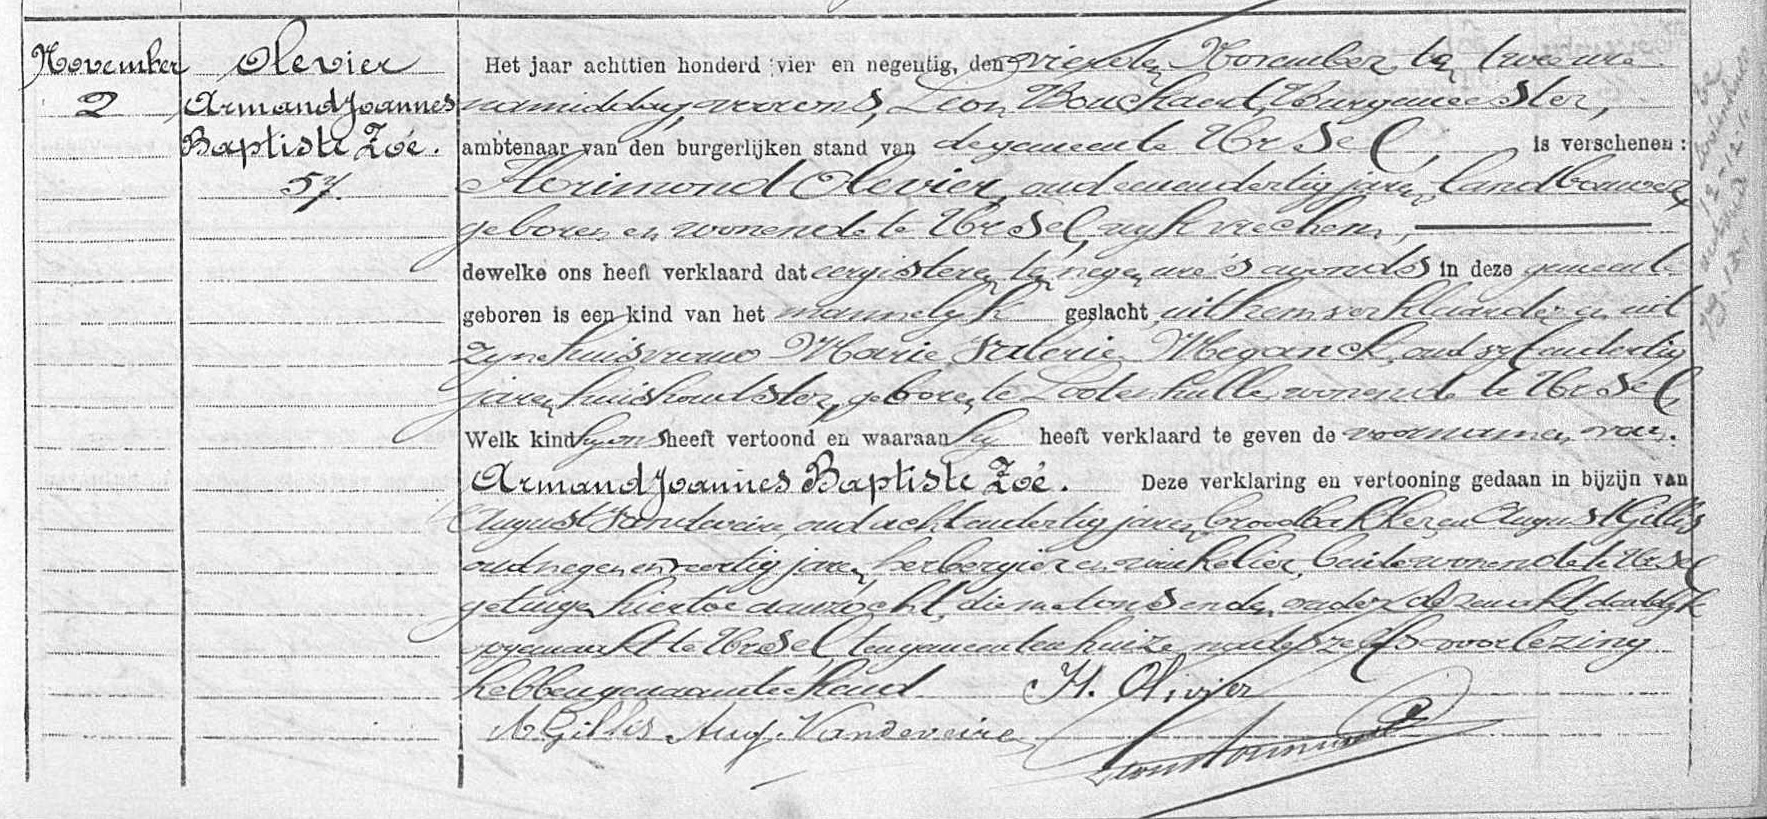 November
2
Olevier
Armand Joannes
Baptiste Zoé.
57.
Het jaar achttien honderd vier en negentig, den vierden November, ten twee ure
namiddag, voor ons, Leon Bouckaert, Burgemeester,
ambtenaar van den burgerlijken stand van de gemeente Ursel, is verschenen:
Florimond Olevier, oud een en dertig jaren, landbouwer,
geboren en wonende te Ursel, wyk
dewelke ons heeft verklaard dat eergisteren, ten negen ure 's avonds in deze gemeente
geboren is een kind van het mannelyk geslacht, uit hem verklaarder en uit
zyne huisvrouw Marie Valerie Meganck, oud en dertig
jaren, huishoudster, geboren te Lootenhulle, wonende te Ursel,
Welk kind hy ons heeft vertoond en waaraan hy heeft verklaard te geven de voornamen van.
Armand Joannes Baptiste Zoé. Deze verklaring en vertooning gedaan in bijzijn van
August Vandeveire, oud acht en dertig jaren, broodbakker, en August Gillis
oud negen en veertig jaren, herbergier en winkelier, beide wonende te Ursel
getuigen hiertoe aanzocht, die met ons en den vader deze akt, dadelyk
opgemaakt te Ursel ten gemeentenhuize, na dezelfs voorlezing
hebben genaamteekend. H. Olivier
A Gillis Aug. Vandeveire